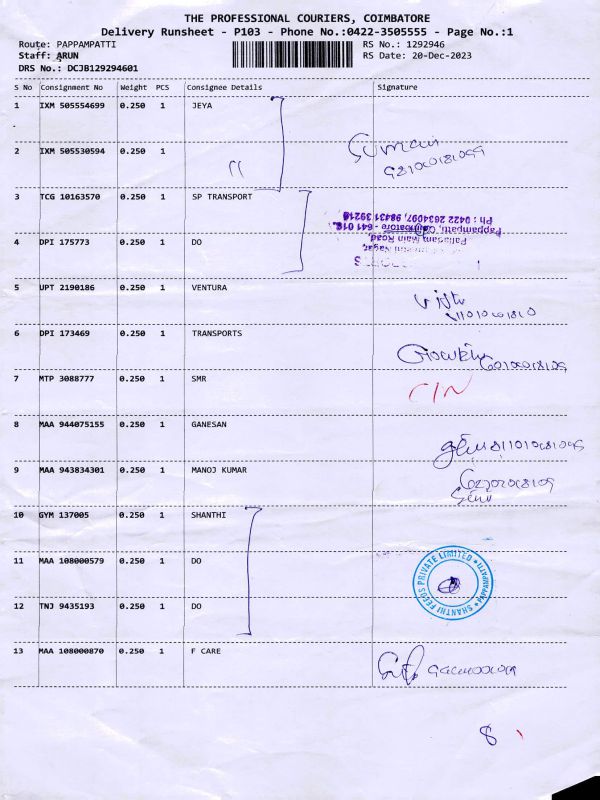 THE PROFESSIONAL COURIERS, COIMBATORE
Delivery Runsheet - P103 - Phone No.:0422-3505555 - Page No.:1
Route: PAPPAMPATTI RS No.: 1292946
Staff: ARUN RS Date: 20-Dec-2023
DRS No.: DCJB129294601
S No Consignment No Weight PCS Consignee Details Signature
1 IXM 505554699 0.250 1 JEYA
2 IXM 505530594 0.250 1
3 TCG 10163570 0.250 1 SP TRANSPORT
4 DPI 175773 0.250 1 DO
Palladam Main Road,
Pappampatti, Coimbatore - 641 016.
Ph : 0422 2634097, 98431 39216
5 UPT 2190186 0.250 1 VENTURA
6 DPI 173469 0.250 1 TRANSPORTS
7 MTP 3088777 0.250 1 SMR
8 MAA 944075155 0.250 1 GANESAN
9 MAA 943834301 0.250 1 MANOJ KUMAR
10 GYM 137005 0.250 1 SHANTHI
11 MAA 108000579 0.250 1 DO
12 TNJ 9435193 0.250 1 DO
SHANTHI FEEDS PRIVATE LIMITED
PAPPAMPATTI
13 MAA 108000870 0.250 1 F CARE
8